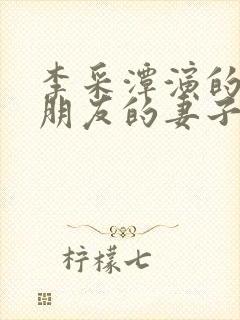 李采潭演的
朋友的妻子
柠檬七